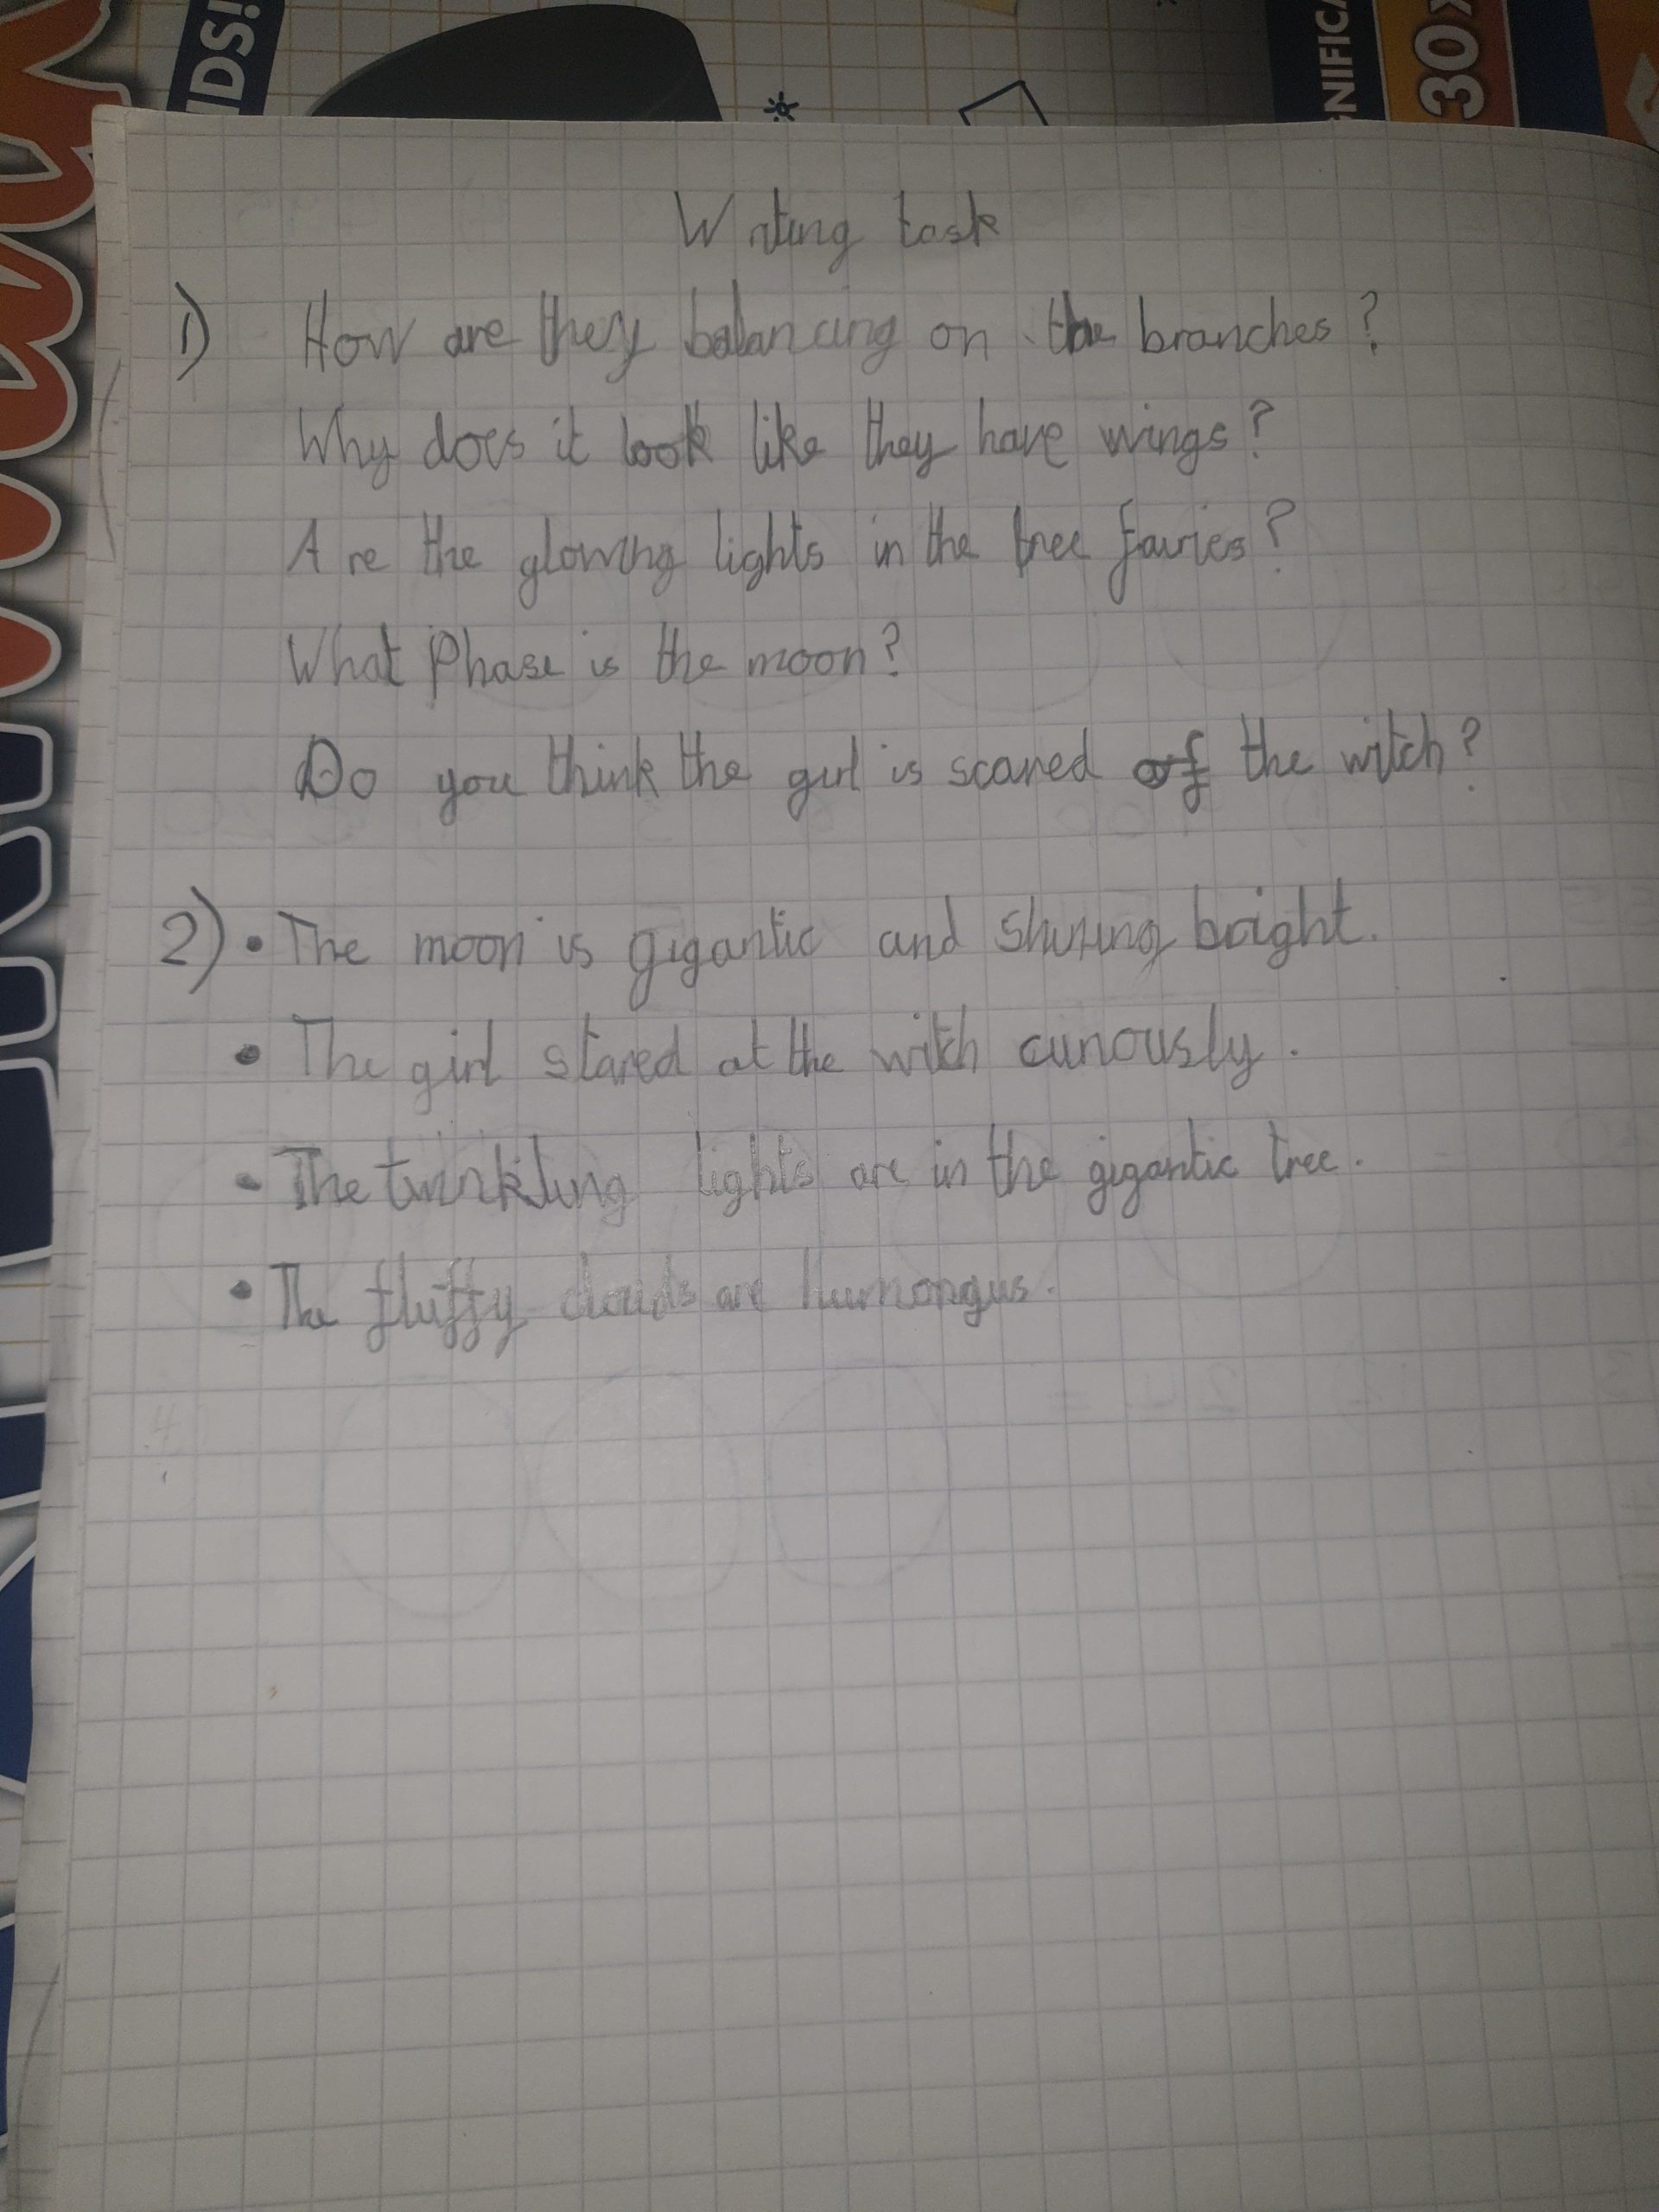 IDS!
GNIFICA
30x
Writing task
1) How are they balancing on the branches?
Why does it look like they have wings?
Are the glowing lights in the tree fairies?
What Phase is the moon?
Do you think the girl is scared of the witch?
2) • The moon is gigantic and shining bright.
• The girl stared at the witch curiously.
• The twinkling lights are in the gigantic tree.
• The fluffy clouds are humongus.